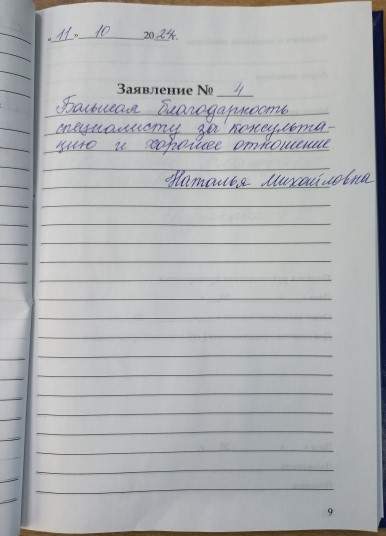 «11» 10 2024г.
Заявление № 4
Большая благодарность
специалисту за консульта-
цию и хорошее отношение
Наталья Михайловна
9